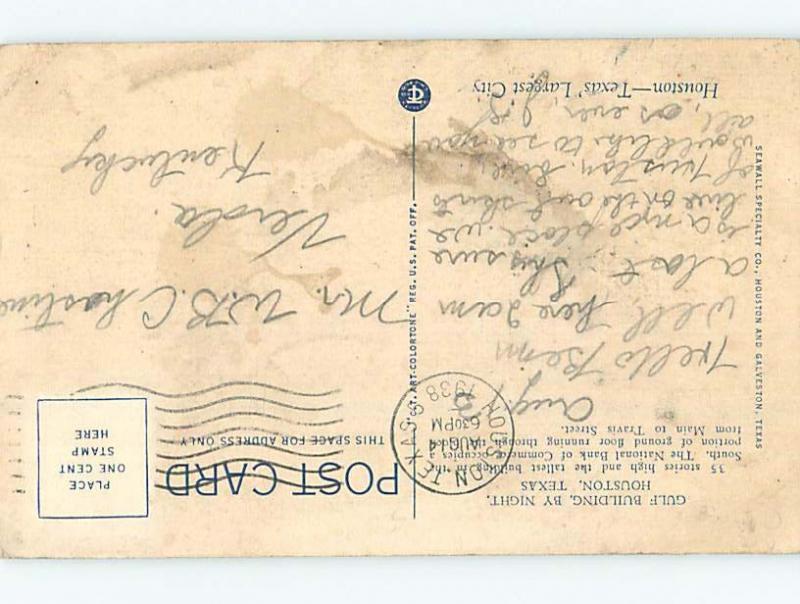 GULF BUILDING, BY NIGHT,
HOUSTON, TEXAS
35 stories high and the tallest building in the
South. The National Bank of Commerce occupies a
portion of ground floor running through the block
from Main to Travis Street.
POST CARD
THIS SPACE FOR ADDRESS ONLY
PLACE
ONE CENT
STAMP
HERE
HOUSTON, TEXAS
AUG 4
6 30 PM
1938
Aug
Hello
Well, here I am
a last. This sure
is a nice place. we
live on the out skirts
of Huston here,
would like to see you
all, as ever,
Mr. W.B. Chastine
Verda.
Kentucky
Houston—Texas' Largest City
SEAWALL SPECIALTY CO., HOUSTON AND GALVESTON, TEXAS
"C.T. ART-COLORTONE" REG. U.S. PAT. OFF.